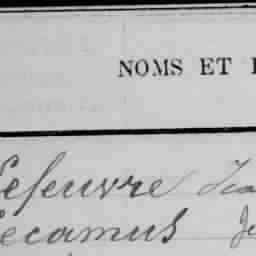 NOMS ET
Lefeuvre
Lecamus